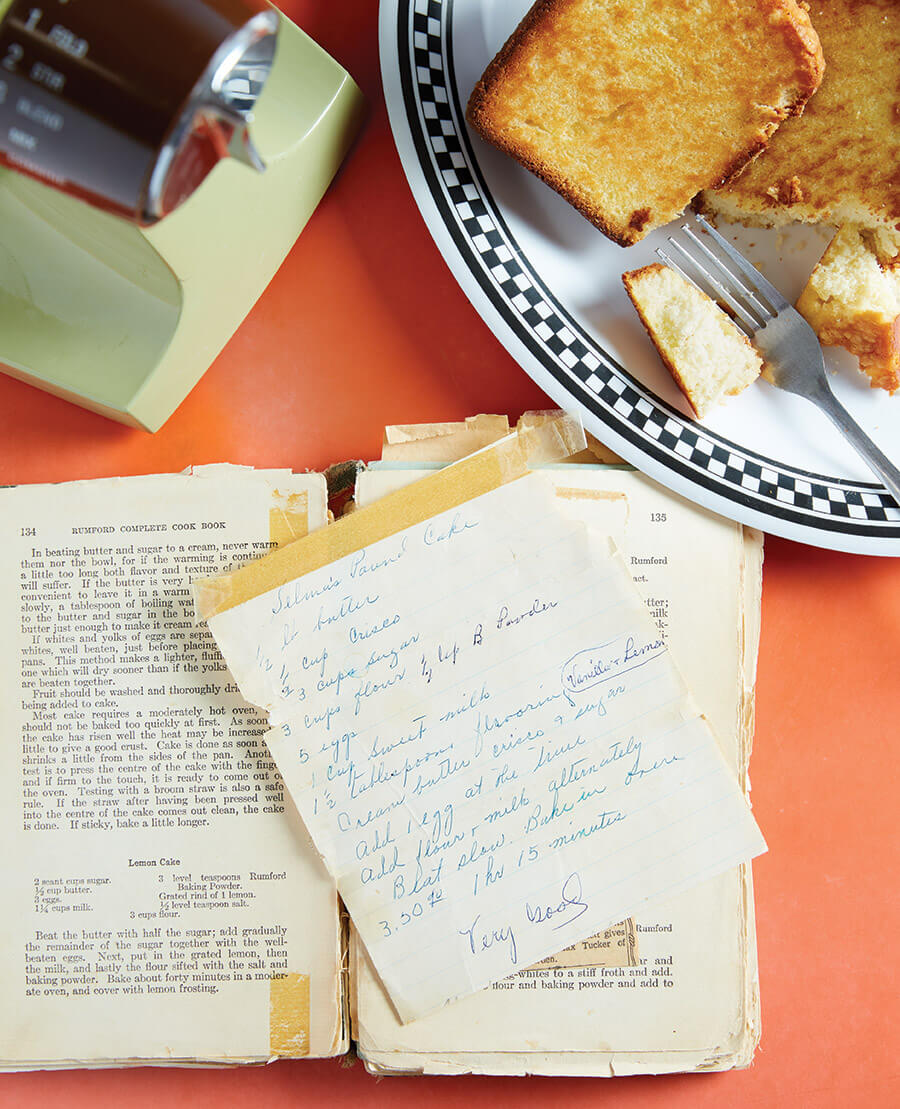 1 FOLD
2 STIR
BLEND
134 RUMFORD COMPLETE COOK BOOK
In beating butter and sugar to a cream, never warm
them nor the bowl, for if the warming is
a little too long both flavor and texture of
will suffer. If the butter is very
convenient to leave it in a warm
slowly, a tablespoon of boiling
to the butter and sugar in the
butter just enough to make it cream
If whites and yolks of eggs are
whites, well beaten, just before placing
pans. This method makes a lighter,
one which will dry sooner than if the yolks
are beaten together.
Fruit should be washed and thoroughly
being added to cake.
Most cake requires a moderately hot oven,
should not be baked too quickly at first. As
the cake has risen well the heat may be
little to give a good crust. Cake is done as soon
shrinks a little from the sides of the pan.
test is to press the centre of the cake with the
and if firm to the touch, it is ready to come out
the oven. Testing with a broom straw is also a safe
rule. If the straw after having been pressed well
into the centre of the cake comes out clean, the cake
is done. If sticky, bake a little longer.
Lemon Cake
2 scant cups sugar.
½ cup butter.
3 eggs.
1¼ cups milk.
3 level teaspoons Rumford
Baking Powder.
Grated rind of 1 lemon.
½ level teaspoon salt.
3 cups flour.
Beat the butter with half the sugar; add gradually
the remainder of the sugar together with the well-
beaten eggs. Next, put in the grated lemon, then
the milk, and lastly the flour sifted with the salt and
baking powder. Bake about forty minutes in a moder-
ate oven, and cover with lemon frosting.
Selma's Pound Cake
½ lb butter
½ cup Crisco
3 cups sugar
3 cups flour ½ tsp B Powder
5 eggs
1 cup sweet milk
1½ tablespoons flavoring Vanilla & Lemon
Cream butter crisco & sugar
Add 1 egg at the time
Add flour & milk alternately
Beat slow. Bake in
3.50° 1 hr 15 minutes
Very Good
135
Rumford
butter;
Rumford
gives
Tucker of
and
whites to a stiff froth and add.
flour and baking powder and add to